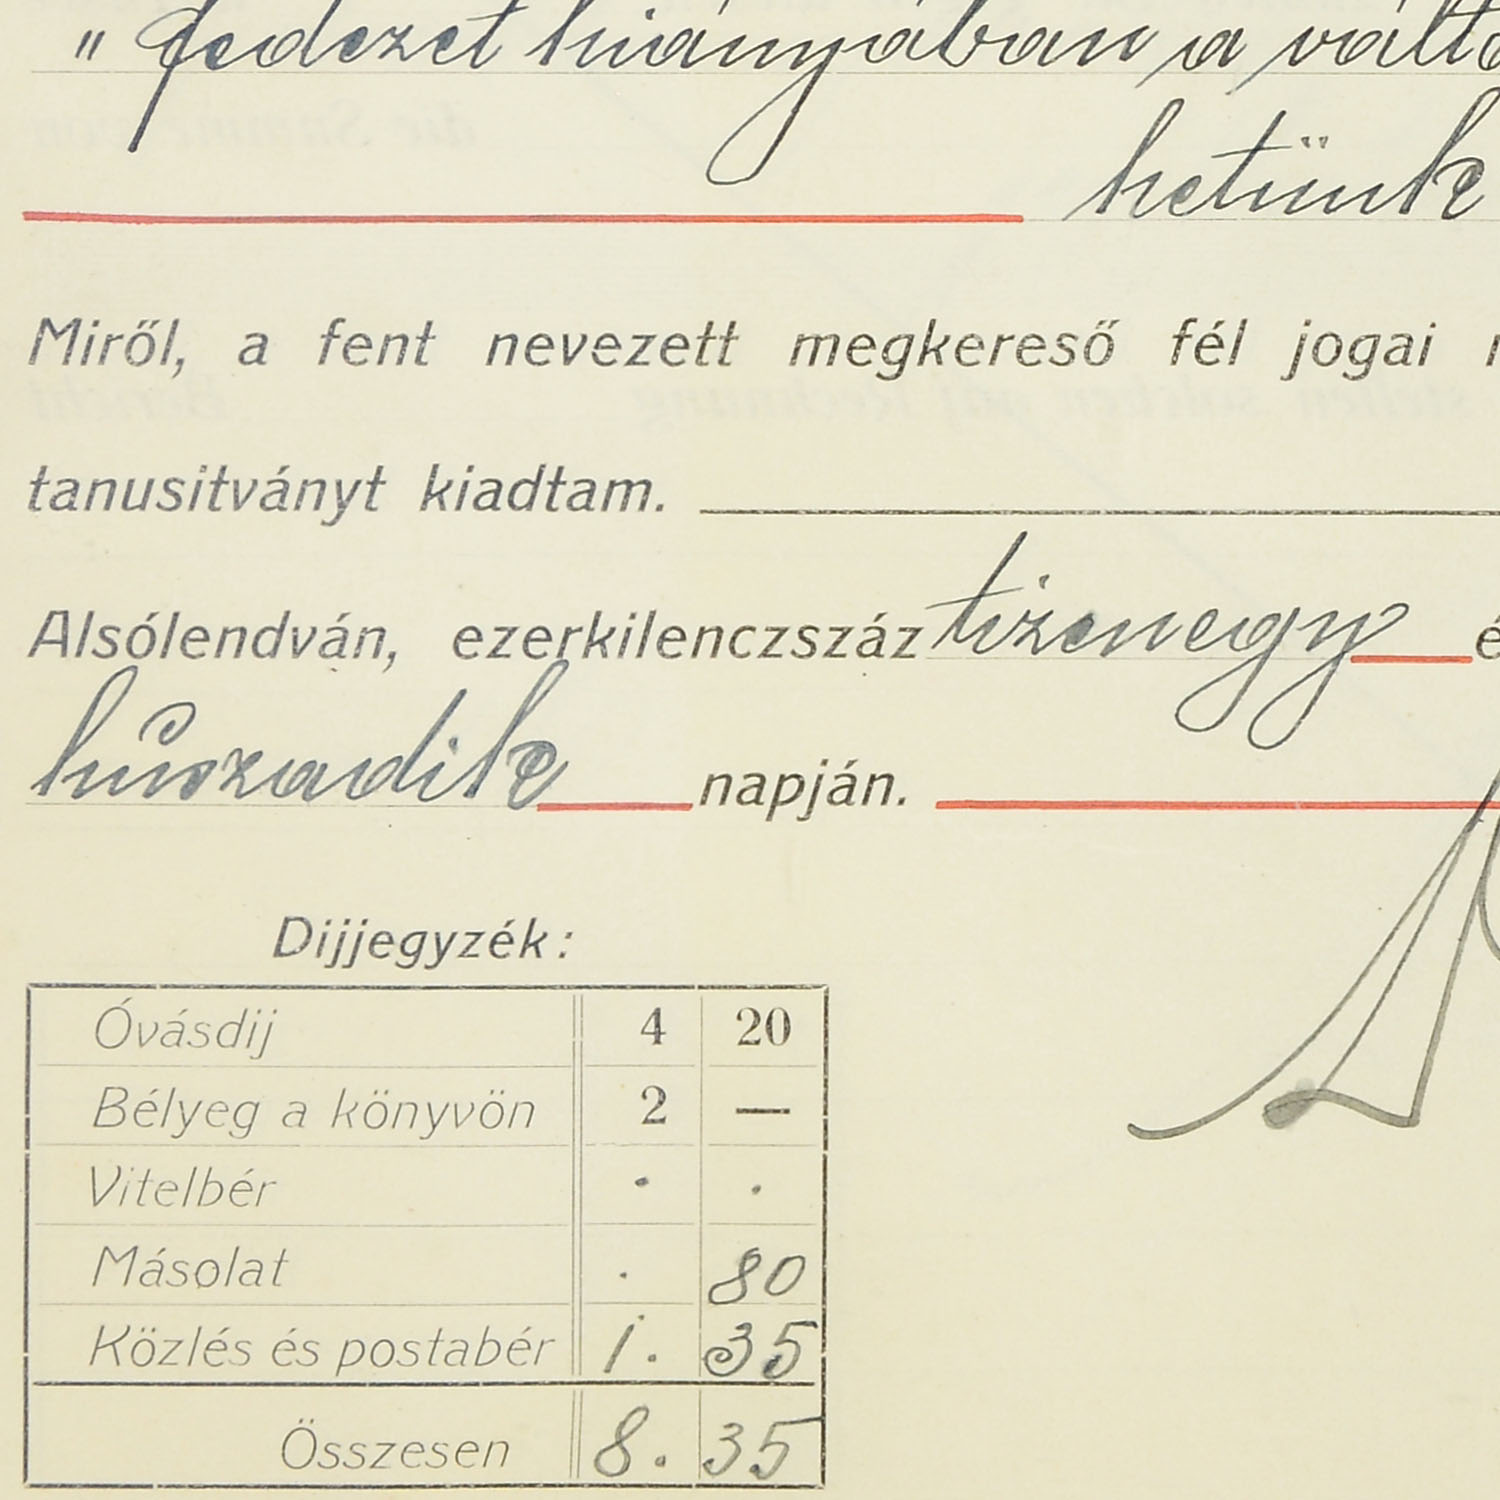 „ fedezet hiányában a váltó
hetünk
Miről, a fent nevezett megkereső fél jogai
tanusitványt kiadtam.
Alsólendván, ezerkilenczszáz tizenegy é
húszadik napján.
Dijjegyzék:
Óvásdij 4 20
Bélyeg a könyvön 2 —
Vitelbér . .
Másolat . 80
Közlés és postabér 1. 35
Összesen 8. 35